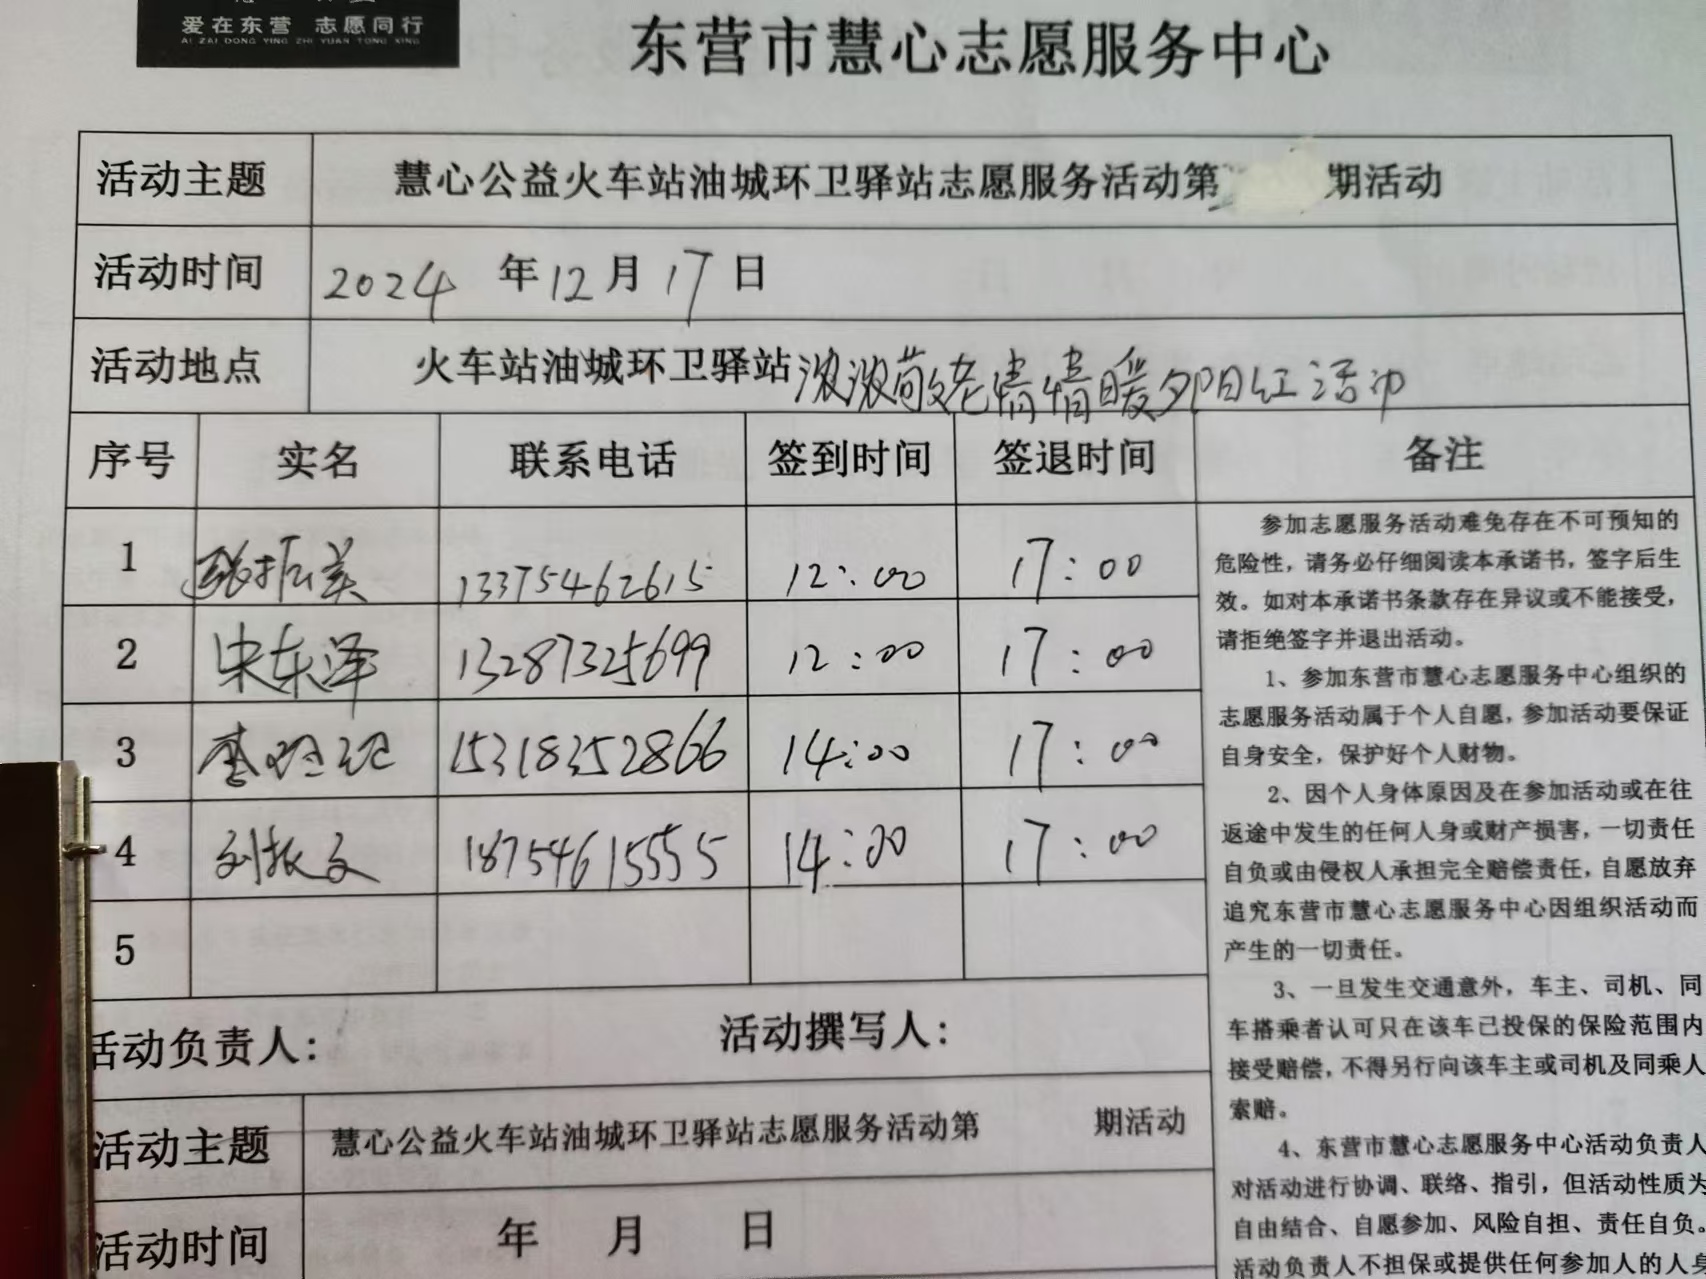 爱在东营 志愿同行
AI ZAI DONG YING ZHI YUAN TONG XING
东营市慧心志愿服务中心
活动主题 慧心公益火车站油城环卫驿站志愿服务活动第 期活动
活动时间 2024 年 12 月 17 日
活动地点 火车站油城环卫驿站浓浓敬老情情暖夕阳红活动
序号 实名 联系电话 签到时间 签退时间 备注
1 张振美 13375462615 12:00 17:00
2 宋东泽 13287325699 12:00 17:00
3 李 15318352866 14:00 17:00
4 刘振文 18754615555 14:00 17:00
5
参加志愿服务活动难免存在不可预知的
危险性，请务必仔细阅读本承诺书，签字后生
效。如对本承诺书条款存在异议或不能接受，
请拒绝签字并退出活动。
1、参加东营市慧心志愿服务中心组织的
志愿服务活动属于个人自愿，参加活动要保证
自身安全，保护好个人财物。
2、因个人身体原因及在参加活动或在往
返途中发生的任何人身或财产损害，一切责任
自负或由侵权人承担完全赔偿责任，自愿放弃
追究东营市慧心志愿服务中心因组织活动而
产生的一切责任。
3、一旦发生交通意外，车主、司机、同
车搭乘者认可只在该车已投保的保险范围内
接受赔偿，不得另行向该车主或司机及同乘人
索赔。
4、东营市慧心志愿服务中心活动负责人
对活动进行协调、联络、指引，但活动性质为
自由结合、自愿参加、风险自担、责任自负。
活动负责人不担保或提供任何参加人的人身
活动负责人： 活动撰写人：
活动主题 慧心公益火车站油城环卫驿站志愿服务活动第 期活动
活动时间 年 月 日